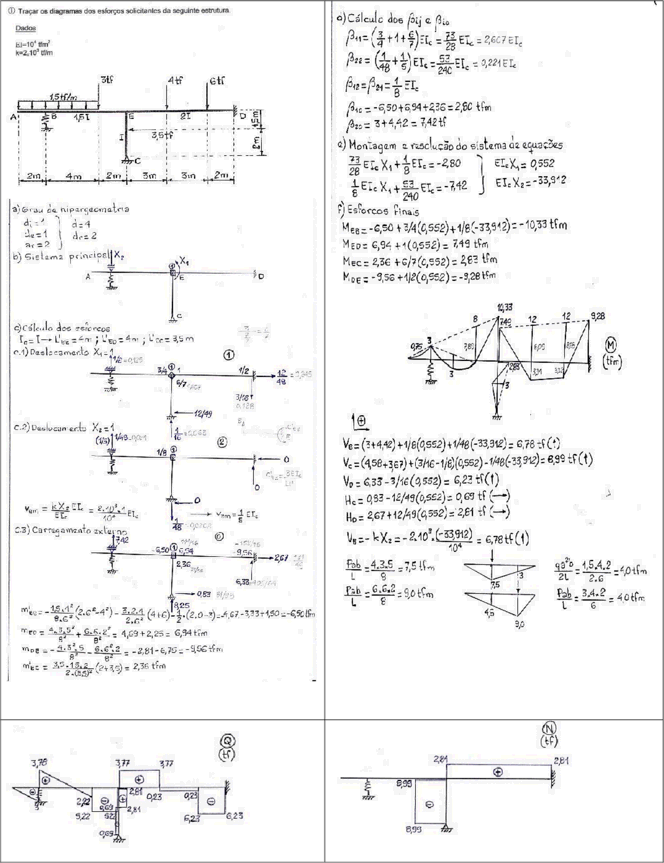 ① Traçar os diagramas dos esforços solicitantes da seguinte estrutura.
Dados
EI=10⁴ tfm²
k=2.10³ tf/m
3tf 4tf 6tf
1,5tf/m
A B 1,5I E 2I D
I 3,5tf
C
1,5m
2m
2m 4m 2m 3m 3m 2m
a) Grau de hipergeometria
di=1
de=1 d=4
ar=2 dr=2
b) Sistema principal
X2 X1
A E D
C
c) Cálculo dos esforços
Ic=I → L'BE=4m; L'ED=4m; L'EC=3,5m
c.1) Deslocamento X1=1
①
3/4 1 1/2
6/7
12/49
c.2) Deslocamento X2=1
②
1/8 0
0
1/48
c.3) Carregamento externo
7,42
-6,50 6,94 -9,56 2,67
2,36
6,33
0,83
8,25
mED = 4.3.5²/8² + 6.6.2²/8² = 4,69+2,25 = 6,94 tfm
mDE = -4.3².5/8² - 6.6².2/8² = -2,81-6,75 = -9,56 tfm
d) Cálculo dos βij e βi0
β11=(3/4+1+6/7)EIc=73/28 EIc=2,607EIc
β22=(1/48+1/5)EIc=53/240 EIc=0,221EIc
β12=β21=1/8 EIc
β10=-6,50+6,94+2,36=2,80 tfm
β20=3+4,42=7,42tf
e) Montagem e resolução do sistema de equações
73/28 EIc X1+1/8 EIc=-2,80 EIc X1=0,552
1/8 EIc X1+53/240 EIc=-7,42 EIc X2=-33,912
f) Esforcos finais
MEB=-6,50+3/4(0,552)+1/8(-33,912)=-10,33 tfm
MED=6,94+1(0,552)=7,49 tfm
MEC=2,36+6/7(0,552)=2,83 tfm
MDE=-9,56+1/2(0,552)=-9,28 tfm
10,33
8 7,49 12 12 9,28
0,75 3
3 2,83
3
M
(tfm)
VB=(3+4,42)+1/8(0,552)+1/48(-33,912)=6,78 tf(↑)
VC=(4,58+3,67)+(3/16-1/8)(0,552)-1/48(-33,912)=8,99 tf(↑)
VD=6,33-3/16(0,552)=6,23 tf(↑)
HC=0,83-12/49(0,552)=0,69 tf (→)
HD=2,67+12/49(0,552)=2,81 tf (→)
VB=-kX2=-2.10³.(-33,912)/10⁴=6,78tf(↑)
Pab/L=4.3.5/8=7,5tfm
Pab/L=6.6.2/8=9,0tfm
7,5 3
4,5 9,0
Pab/L=3.4.2/6=4,0tfm
Q
(tf)
3,78 3,77 3,77
2,81
2,22 0,23 0,23
5,22 0,69 2,81
3
0,69 6,23 6,23
N
(tf)
2,81 2,81
8,99
8,99